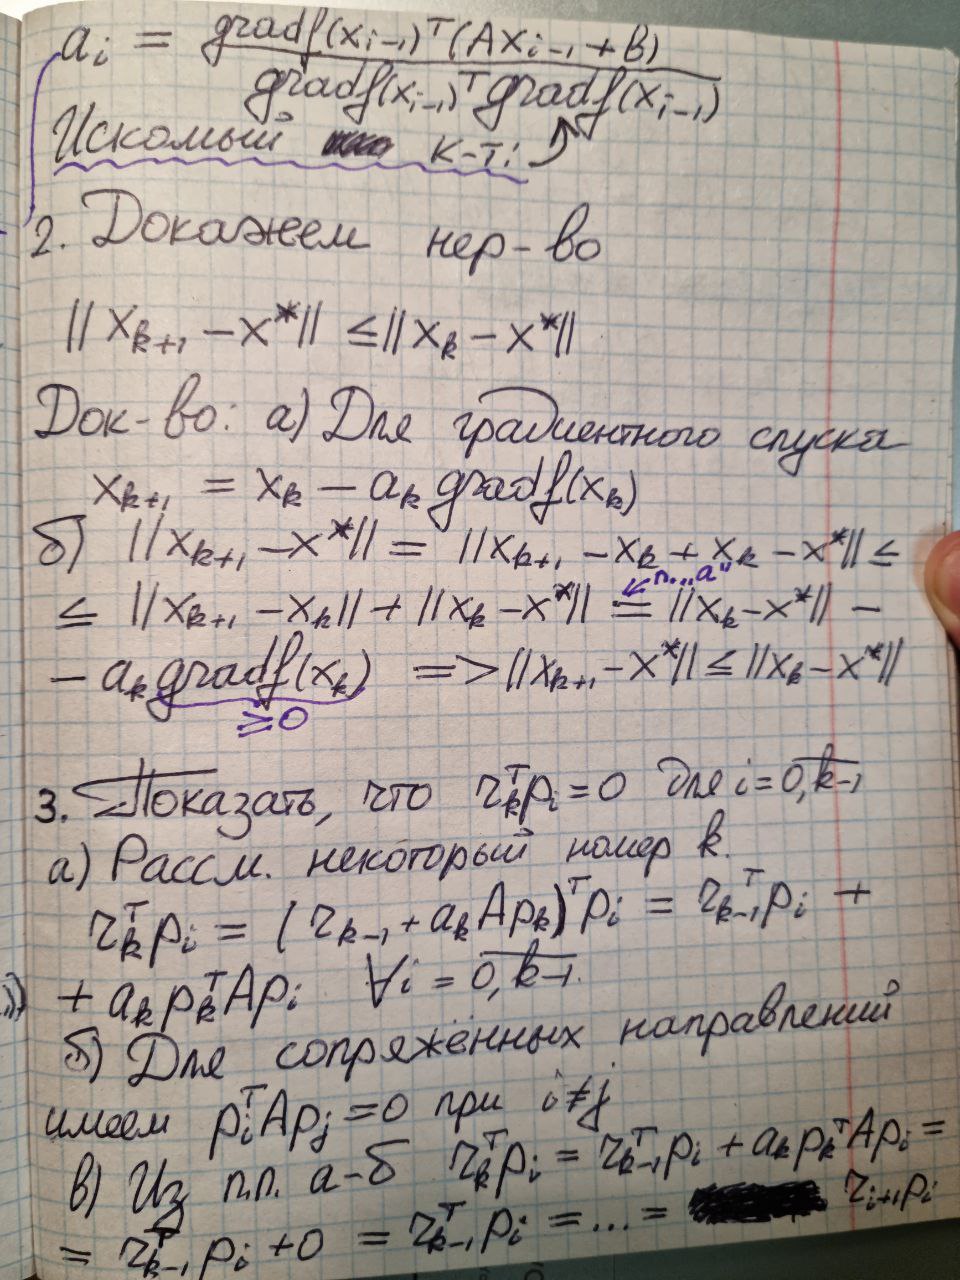 aᵢ = gradf(xᵢ₋₁)ᵀ(Axᵢ₋₁ + b)
gradf(xᵢ₋₁)ᵀ gradf(xᵢ₋₁)
Искомый к-т:
2. Докажем нер-во
||xₖ₊₁ - x*|| ≤ ||xₖ - x*||
Док-во: а) Для градиентного спуска
xₖ₊₁ = xₖ - aₖ gradf(xₖ)
б) ||xₖ₊₁ - x*|| = ||xₖ₊₁ - xₖ + xₖ - x*|| ≤
п. „а"
≤ ||xₖ₊₁ - xₖ|| + ||xₖ - x*|| = ||xₖ - x*|| -
- aₖ gradf(xₖ) => ||xₖ₊₁ - x*|| ≤ ||xₖ - x*||
≥ 0
3. Показать, что rₖᵀpᵢ = 0 для i = 0, k-1
а) Рассм. некоторый номер k.
rₖᵀpᵢ = (rₖ₋₁ + aₖApₖ)ᵀpᵢ = rₖ₋₁ᵀpᵢ +
+ aₖpₖᵀApᵢ ∀i = 0, k-1.
б) Для сопряжённых направлений
имеем pᵢᵀApⱼ = 0 при i ≠ j
в) Из п.п. а-б rₖᵀpᵢ = rₖ₋₁ᵀpᵢ + aₖpₖᵀApᵢ =
= rₖ₋₁ᵀpᵢ + 0 = rₖ₋₁ᵀpᵢ = ... = rᵢ₊₁pᵢ